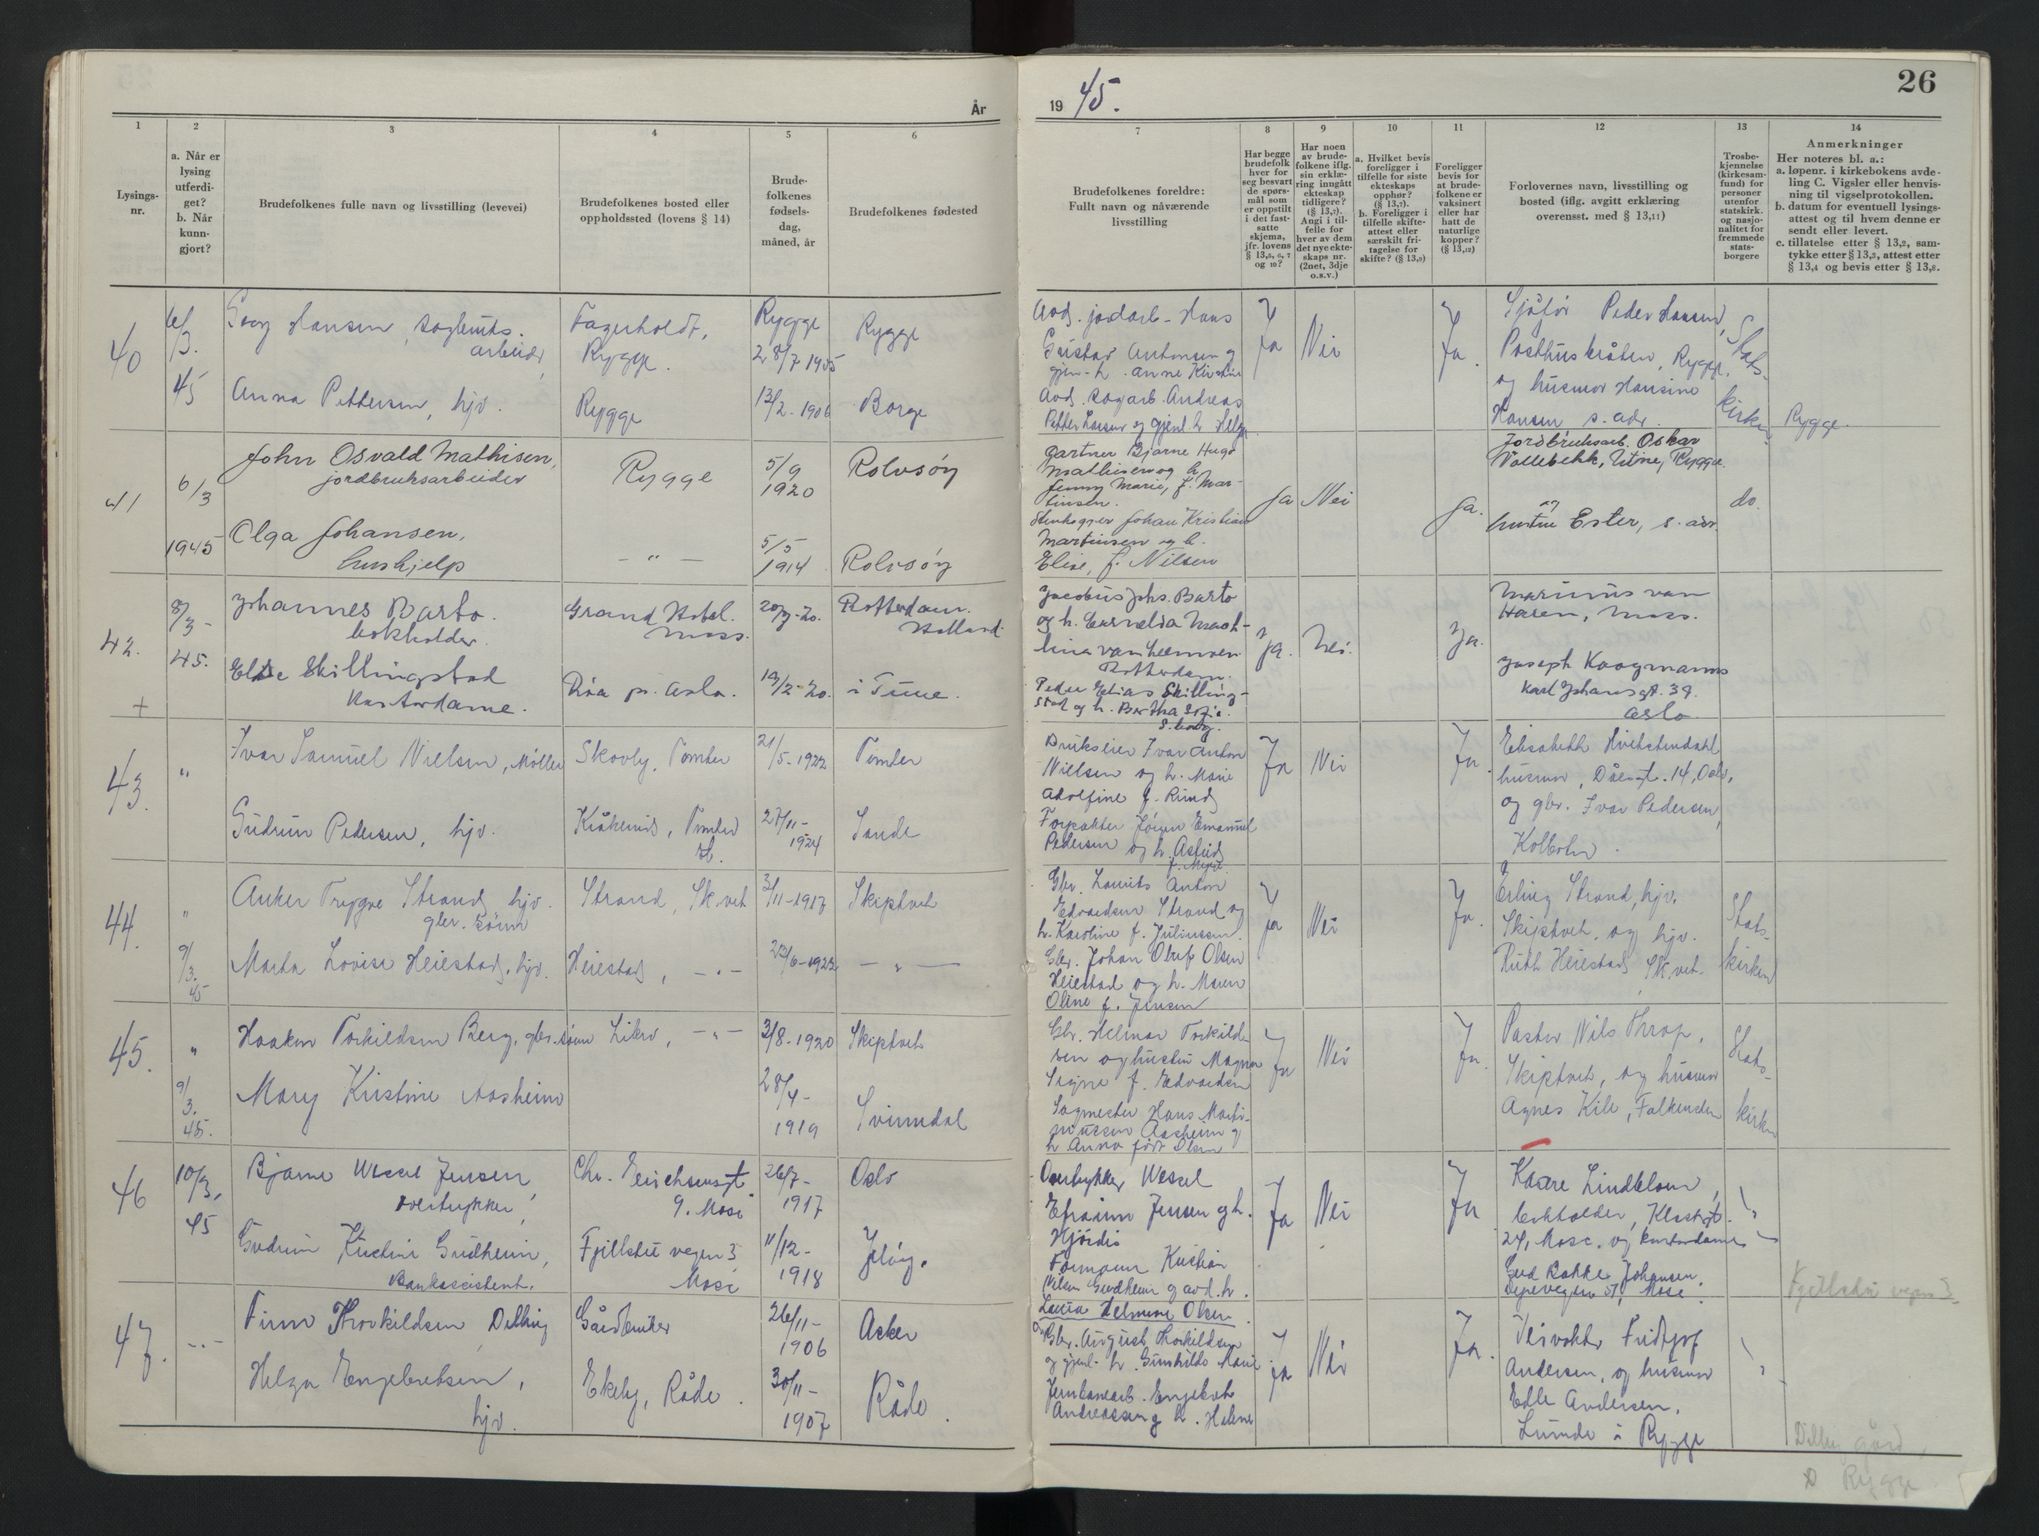 År
19 45.
26
1
2
3
4
5
6
7
8
9
10
11
12
13
14
Lysings-
nr.
a. Når er
lysing
utferdi-
get?
b. Når
kunn-
gjort?
Brudefolkenes fulle navn og livsstilling (levevei)
Brudefolkenes bosted eller
oppholdssted (lovens § 14)
Brude-
folkenes
fødsels-
dag,
måned, år
Brudefolkenes fødested
Brudefolkenes foreldre:
Fullt navn og nåværende
livsstilling
Har begge
brudefolk
hver for
seg besvart
de spørs-
mål som
er oppstilt
i det fast-
satte
skjema,
jfr. lovens
§ 13,5, 6, 7
og 10?
Har noen
av brude-
folkene iflg.
sin erklæ-
ring inngått
ekteskap
tidligere?
(§ 13,7).
Angi i til-
felle for
hver av dem
det nye ekte-
skaps nr.
(2net, 3dje
o.s.v.)
a. Hvilket bevis
foreligger i
tilfelle for siste
ekteskaps
opphør?
(§ 13,7).
b. Foreligger i
tilfelle skifte-
attest eller
særskilt fri-
tagelse for
skifte? (§ 13,9)
Foreligger
bevis for
at brude-
folkene er
vaksinert
eller har
hatt de
naturlige
kopper?
(§ 13,12)
Forlovernes navn, livsstilling og
bosted (iflg. avgitt erklæring
overensst. med § 13,11)
Trosbe-
kjennelse
(kirkesam-
fund) for
personer
utenfor
statskirk.
og nasjo-
nalitet for
fremmede
stats-
borgere
Anmerkninger
Her noteres bl. a.:
a. løpenr. i kirkebokens avde-
ling C. Vigsler eller henvis-
ning til vigselprotokollen.
b. datum for eventuell lysings-
attest og til hvem denne er
sendt eller levert.
c. tillatelse etter § 13,2, sam-
tykke etter § 13,3, attest etter
§ 13,4 og bevis etter § 13,8.
40
6/3.
45
Georg Hansen, sagbruks.
arbeider
Fagerholdt,
Rygge.
Rygge
28/7 1905
Rygge
Anna Pettersen, hjv.
Rygge
13/2-1906
Borge
Avd. jordarb. Hans
Gustav Antonsen og
gjen. h. Anne Kirstine
Avd. sagarb. Andreas
Petter Larsen og gjenl. h. Helga
Ja
Nei
Ja.
Sjåfør Peder Hansen,
Posthuskroken, Rygge,
og husmor Hansine
Hansen s. adr.
Stats-
kirken
Rygge.
41
6/3
1945
John Osvald Mathisen,
jordbruksarbeider
Rygge
5/9
1920
Rolvsøy
Olga Johansen,
hushjelp
— " —
5/5
1914
Rolvsøy
gartner Bjarne Hugo
Mathisen og h.
Jenny Marie, f. Mar-
tinsen.
Stenhogger Johan Kristian
Martinsen og h.
Elise, f. Nilsen
Ja
Nei
Ja.
Jordbruksarb. Oskar
Vallebekk, Rygge.
og
hustru Ester, s. adr.
do.
42.
+
8/3-
45.
Johannes Barto
bokholder.
Grand Hotel.
Moss.
Rotterdam.
Holland.
Else Skillingstad
Kontordame.
Röa p. Oslo.
19/2-20.
i Tune.
Jacobus Jphs. Barto
og h. Cornelia
van
Rotterdam.
Peder Elias Skilling-
stad og h. Bertha
S. borg.
Ja.
Nei.
Ja.
Marinus van
Haren, Moss.
Joseph Koogmanns
Karl Johansgt. 39.
Oslo.
43.
"
Ivar Samuel Nielsen, Møller
Skovly, Tomter
21/5-1922
Tomter
Gudrun Pedersen, hjv.
Kråkerud, Tomter
st.
27/11-
1924
Sande
Brukseier Ivar Anton
Nielsen og h. Marie
Adolfine f. Rund
Forpakter Jörgen Emanuel
Pedersen og h. Astrid
Ja
Nei
Ja.
Elisabeth Hvitstendahl
husmor, 14, Oslo,
og gbr. Ivar Pedersen,
Kolbotn.
44.
"
9/3.
45
Anker Trygve Strand, hjv.
gbr. sönn
Strand, Sk.vet
3/11-1917
Skiptvet
Marta Lovise Heiestad, hjv.
Heiestad, — " —
23/6-1922
— " —
Gbr. Laurits Anton
Edvardsen Strand og
h. Karoline f. Juliussen.
Gbr. Johan Oluf Olsen
Heiestad og h. Maren
Oline f. Jensen
Ja
Nei
Ja.
Erling Strand, hjv.
Skiptvet, og hjv.
Ruth Heiestad, Sk.vet.
Stats-
kirken
45.
"
9/3.
45.
Haakon Torkildsen Berg, gbr. sönn
— " —
3/8-1920
Skiptvet
Mary Kristine Aasheim
28/4-
1919
Svinndal
Gbr. Helmer Torkild-
sen og hustru Magna
Signe f. Edvardsen
Sagmester Hans Marti-
nussen Aasheim og
h Anna född Olsen
Ja
Nei
Ja.
Pastor Nils Thrap,
Skiptvet, og husmor
Agnes Kile, Falkensten
Stats-
kirken
46
10/3,
45
Bjarne Wessel Jensen,
overtrykker
Chr. Erichsensgt
9. Moss
26/7-
1917
Oslo
Gudrun Kirstine Gudheim,
Bankassistent.
Fjellstuvegen 5
Moss
11/12-
1918
Jelöy.
Overtrykker Wessel
Efraim Jensen og h.
Hjördis
Formann Kristian
Nilsen Gudheim og avd. h.
Laura Helmine Olsen
Ja
Nei
Ja
Kaare Lindblom,
bokholder,
24, Moss. og kontordame
Gud Bakke Johansen,
Moss.
Fjellstuvegen 5.
47.
— " —
Finn Thorkildsen Dilling
Gårdbruker
26/11-
1906
Asker
Helga Engebretsen,
hjv.
Ekeby, Råde.
30/11-
1907
Råde.
Gbr. August Thorkildsen
og gjenl. h. Gunhilda Marie
Jernbanearb. Engebret
Andreassen og h. Helene
Ja
Nei
Ja.
Veivokter Fridtjof
Andersen, og husmor
Edle Andersen,
Lunde i Rygge
Dilling gård,
Rygge.